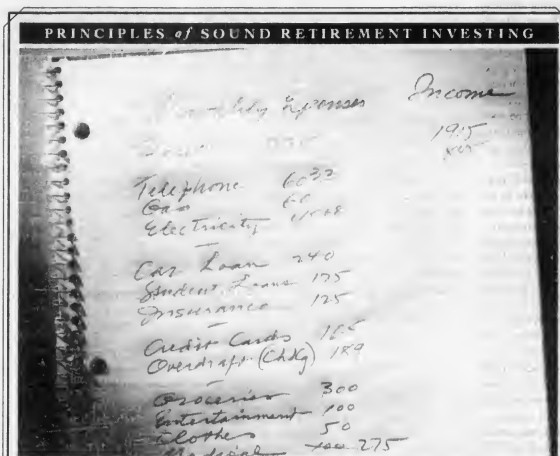 PRINCIPLES of SOUND RETIREMENT INVESTING
Monthly Expenses Income
1915
Telephone 60 32
Gas 60
Electricity
Car Loan 240
Student Loans 175
Insurance 125
Credit Cards 165
Overdraft (Chkg) 189
Groceries 300
Entertainment 100
Clothes 50
Medical 275